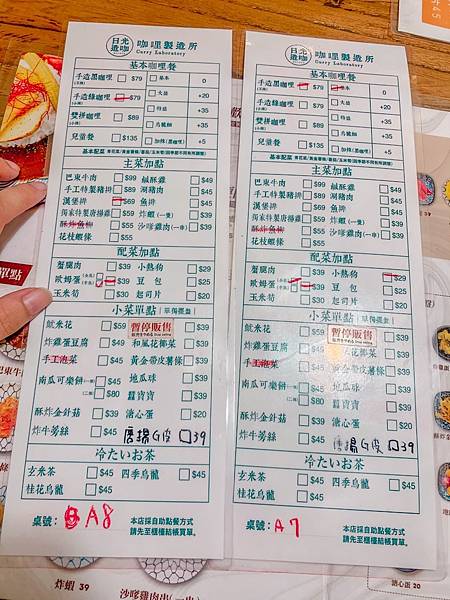 日光
造咖
咖哩製造所
Curry Laboratory
基本咖哩餐
手造黑咖哩 $79 基本 0
手造綠咖哩 $79 大盛 +20
雙拼咖哩 $89 +35
兒童餐 $135 烏龍麵 +35
加辣(黑咖哩) +5
主菜加點
巴東牛肉 $99 鹹酥雞 $49
手工特製豬排 $89 涮豬肉 $45
漢堡排 $69 魚排 $45
獨家特製唐揚雞 $59 炸蝦(一隻) $39
酥炸魚柳 $55 沙嗲雞肉(一串) $39
花枝蝦條 $55
配菜加點
蟹腿肉 $39 小熱狗 $29
歐姆蛋 $39 豆包 $25
玉米筍 $30 起司片 $20
小菜單點
魷米花 $59 暫停販售
炸雞蛋豆腐 $49 和風花椰菜 $39
手工泡菜 $45 黃金帶皮薯條 $39
南瓜可樂餅 $45 地瓜球 $39
$80 囍寶寶 $39
酥炸金針菇 $39 溏心蛋 $20
炸牛蒡絲 $45 唐揚G皮 39
冷たいお茶
玄米茶 $45 四季烏龍 $45
桂花烏龍 $45
桌號: A8
本店採自助點餐方式
請先至櫃檯結帳買單。
日光
造咖
咖哩製造所
Curry Laboratory
基本咖哩餐
手造黑咖哩 $79 基本 0
手造綠咖哩 $79 大盛 +20
雙拼咖哩 $89 +35
兒童餐 $135 烏龍麵 +35
加辣(黑咖哩) +5
主菜加點
巴東牛肉 $99 鹹酥雞 $49
手工特製豬排 $89 涮豬肉 $45
漢堡排 $69 魚排 $45
獨家特製唐揚雞 $59 炸蝦(一隻) $39
酥炸魚柳 $55 沙嗲雞肉(一串) $39
花枝蝦條 $55
配菜加點
蟹腿肉 $39 小熱狗 $29
歐姆蛋 $39 豆包 $25
玉米筍 $30 起司片 $20
小菜單點
魷米花 $59 暫停販售
炸雞蛋豆腐 $49 和風花椰菜 $39
手工泡菜 $45 黃金帶皮薯條 $39
南瓜可樂餅 $45 地瓜球 $39
$80 囍寶寶 $39
酥炸金針菇 $39 溏心蛋 $20
炸牛蒡絲 $45 唐揚G皮 39
冷たいお茶
玄米茶 $45 四季烏龍 $45
桂花烏龍 $45
桌號: A7
本店採自助點餐方式
請先至櫃檯結帳買單。
單點
巴東牛
炸蝦 39
沙嗲雞肉串(一串)
溏心蛋 20